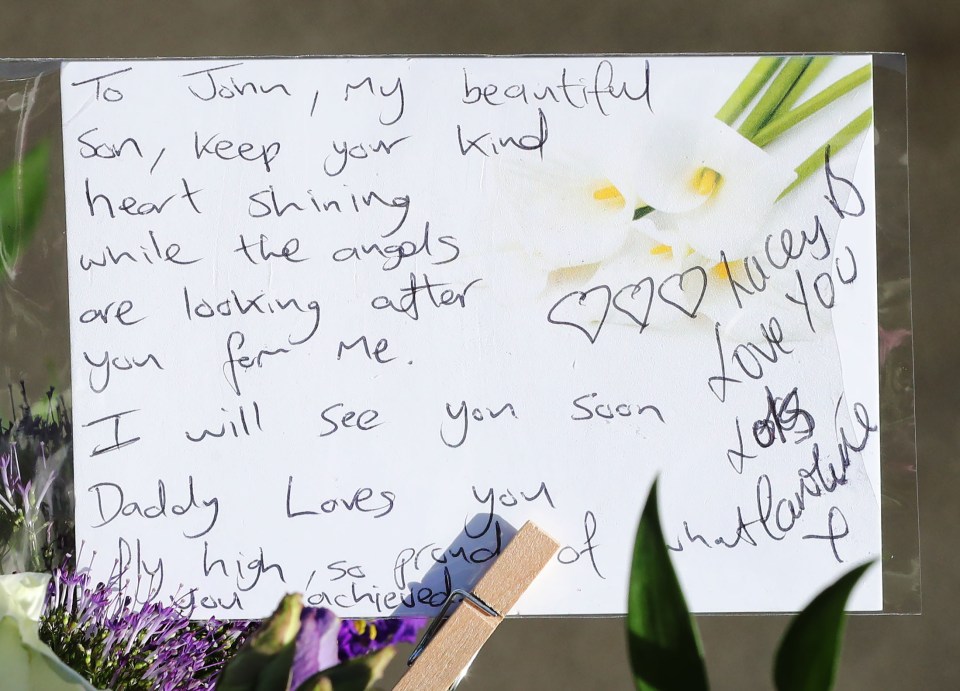 To John, my beautiful
Son, keep your kind
heart shining
while the angels
are looking after
you for me.
I will see you soon
Daddy Loves you
fly high, so proud of what
you achieved
Lacey
Love you
Lots
Caroline
x